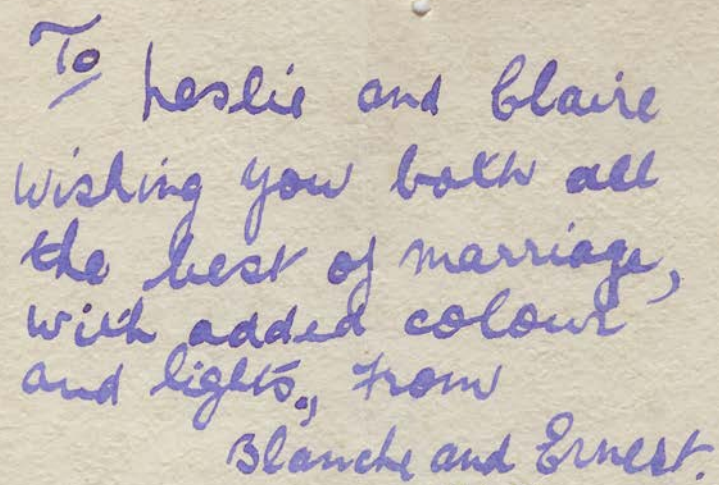 To
Leslie and Claire
wishing you both all
the best of marriage,
with added colour
and lights., from
Blanche and Ernest.